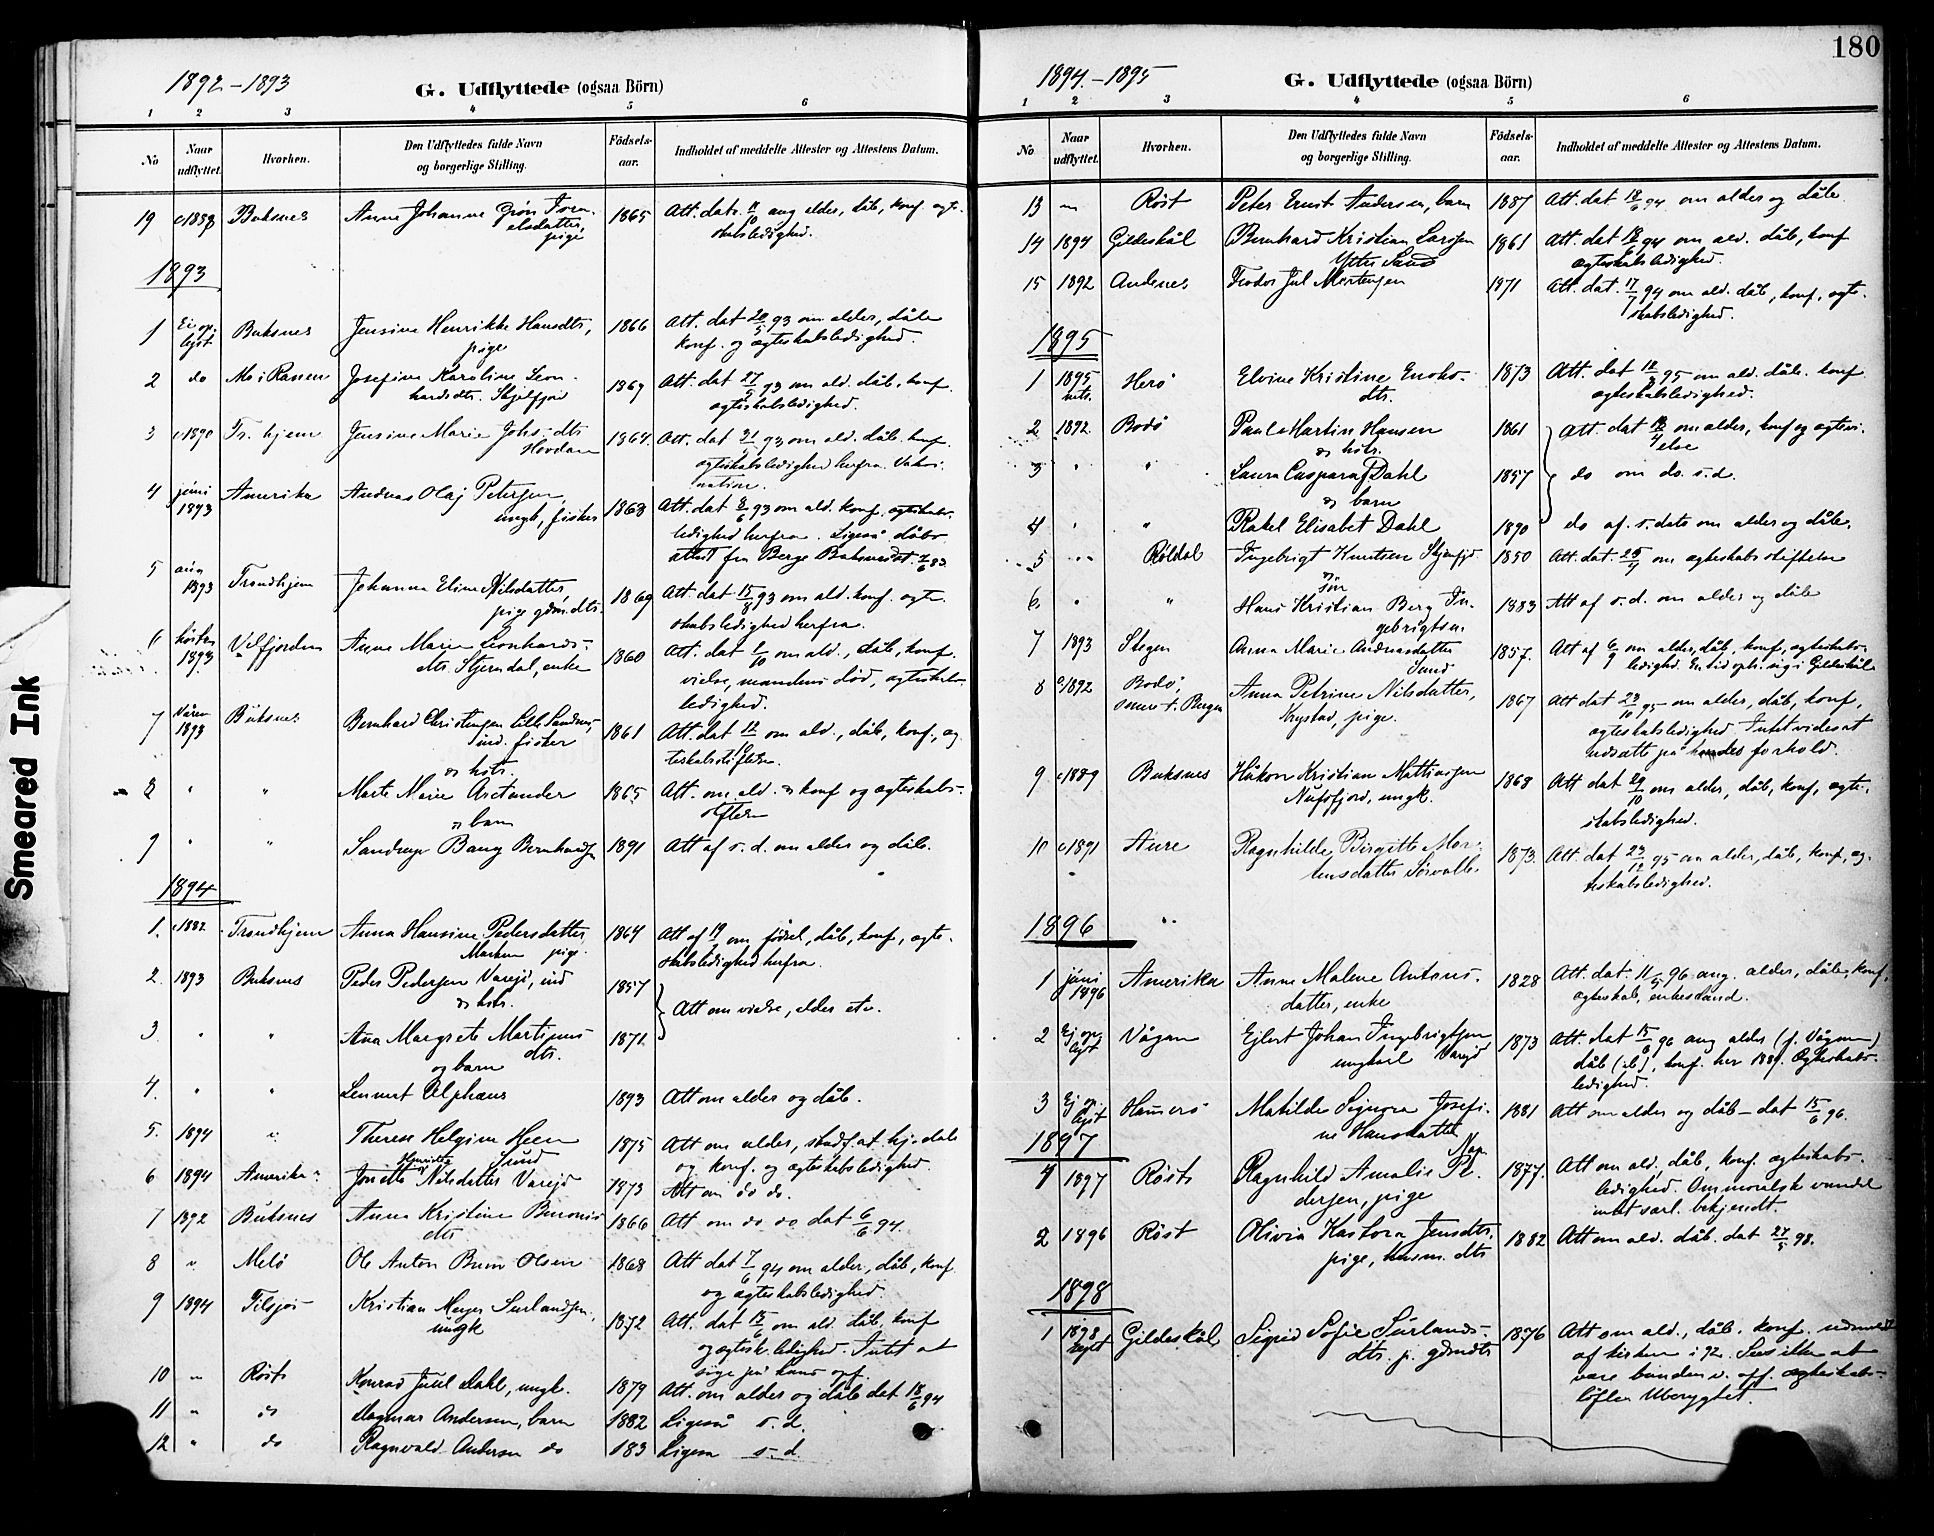 180
Smeared Ink
1892–1893
G. Udflyttede (ogsaa Börn)
1 2 3 4 5 6
No Naar udflyttet. Hvorhen. Den Udflyttedes fulde Navn og borgerlige Stilling. Födselsaar. Indholdet af meddelte Attester og Attestens Datum.
19 Buksnes Anne Johanne Grøn 1865 Att. dat. ang alder, dåb, konf. ægte-
elsdatter, pige skabsledighed.
1893
1 Ei op. Buksnes Jensine Henrikke Hansdtr, 1866 Att. dat 20/5 93 om alder, dåb
lyst pige konf. og ægteskabsledighed.
2 do Mo i Ranen Josefine Karoline Leon- 1869 Att. dat 27/5 93 om ald. dåb, konf.
hardsdtr. Skjelfjord ægteskabsledighed.
3 1890 Tr. hjem Jensine Marie Johs. dtr 1864. Att. dat 93 om ald. dåb. konf.
ægteskabsledighed herfra. Vakci-
nation.
4 juni Amerika Andreas Olaj Petersen, 1868 Att. dat 93 om ald. konf. ægteskabs-
1893 ungk, fisker ledighed herfra. Ligeså dåbs-
attest fra Berge Buksnes dat.
5 aug Trondhjem Johanna Eline Nilsdatter, 1869 Att. dat 15/8 93 om ald. konf. ægte-
1893 pige gdm. dtr. skabsledighed herfra.
6 høsten Velfjorden Anne Marie Leonhards- 1860 Att. dat 1/10 om ald., dåb, konf.
1893 dtr. Stjerndal, enke vielse, mandens død, ægteskabs-
ledighed.
7 Våren Buksnes Bernhard Christensen Lille Sandnes, 1861 Att. dat om ald., dåb, konf., æg-
1893 ind. fisker teskabsstiftelse.
& hstr.
8 " " Marte Marie Arctander 1865 Att. om ald. & konf og ægteskabs-
& barn stiftelse
9 " " Bang Bernhardsen 1891 Att af s. d. om alder og dåb.
1894
1. 1882 Trondhjem Anna Hansine Pedersdatter 1864 Att af om fødsel, dåb, konf, ægte-
pige. skabsledighed herfra.
2. 1893 Buksnes Peder Pedersen Varejd, ind 1857 Att om vielse, alder etc.
& hstr.
3. " " Ana Margrete Martinus- 1871
dtr.
og barn
4. " " Lennert Alphæus 1893 Att om alder og dåb.
5. 1894 " Therese Helgine Heen 1875 Att om alder, stadf. at hj. dåb
Sund og konf. og ægteskabsledighed.
6 1894 Amerika Jonette Henriette Nilsdatter Varejd 1873 Att om do do.
7 1892 Buksnes Anne Kristine 1866 Att om do do dat 6/6 94.
dtr
8 " Melö Ole Anton Brun Olsen 1868 Att dat 7/6 94 om alder, dåb, konf.
og ægteskabsledighed
9 1894 Kristian Meyer Surlandsen, 1872 Att. dat om ald. dåb, konf
ungk og ægtesk. ledighed. Intet at
sige på hans opf.
10 " Röst Konrad Juul Dahl, ungk. 1879 Att. om alder og dåb dat 18/6 94
11 " do Dagmar Andersen, barn 1882 Ligeså s. d.
12 " do Ragnvald Andersen do 183 Ligeså s. d.
1894.–1895
G. Udflyttede (ogsaa Börn)
1 2 3 4 5 6
No Naar udflyttet. Hvorhen. Den Udflyttedes fulde Navn og borgerlige Stilling. Födselsaar. Indholdet af meddelte Attester og Attestens Datum.
13 " Röst Peter Ernst Andersen, barn 1887 Att. dat 18/6 94 om alder og dåb
14 1894 Gildeskål Bernhard Kristian Larssen 1861 Att. dat 18/6 94 om ald. dåb, konf
Ytter Sund ægteskabsledighed.
15 1892 Andenes Teodor Jul Mortensen 1871 Att. dat. 17/7 94 om ald. dåb, konf, ægte-
skabsledighed.
1895
1 1895 Herö Elvine Kristine Enoks- 1873 Att. dat 95 om ald. dåb. konf
dtr. ægteskabsledighed.
2 1892 Bodö Paul Martin Hansen 1861 Att. dat om alder, konf og ægtevi-
& hstr. else
3 " " Laura Caspara Dahl 1857 do om do. s. d.
& barn
4 " " Rakel Elisabet Dahl 1890 do af s. dato om alder og dåb.
5 " Röldal Ingebrigt Knutsen 1850 Att. dat. om ægteskabsstiftelse
& sön
6 " " Hans Kristian Berg In- 1883 Att af s. d. om alder og dåb
gebrigtsen.
7 1893 Stegen Anna Marie Andreasdatter 1857. Att af 6/9 om alder, dåb, konf, ægteskabs-
Sund ledighed. En tid opholdt sig i Gildeskål
8 1892 Bodö, Anna Petrine Nilsdatter, 1867 Att dat 23/10 95 om alder, dåb, konf,
senere t. Bergen Krystad, pige. ægteskabsledighed. Intet vides at
udsætte på hendes forhold.
9 1889 Buksnes Håkon Kristian Mathiassen 1868 Att dat 29/10 om alder, dåb, konf, ægte-
Nufsfjord, ungk. skabsledighed.
10 1891 Aure Ragnhilde Birgitte Mor- 1873. Att. dat 23/12 95 om alder, dåb, konf, æg-
tensdatter teskabsledighed.
1896
1 juni Amerika Anne Malene Antons- 1828 Att. dat. 11/5 96 ang. alder, dåb, konf,
1896 datter, enke ægteskab, enkestand.
2 Ej op Vågan Ejlert Johan Ingebrigtsen 1873 Att. dat 15/6 96 ang alder (f. Vågan)
lyst ungkarl Varejd dåb (ib), konf. her 1889. Ægteskabs-
ledighed.
3 Ej op. Hamerö Matilde Signora Josefi- 1881 Att om alder og dåb – dat 15/6 96.
lyst ne Hansdatter
1897
1 1897 Röst Ragnhild Amalie Pe- 1877. Att om ald, dåb, konf. ægteskabs-
dersen, pige ledighed. Om moralsk vandel
intet særl. bekjendt.
2 1896 Röst Olivia Kastora Jensdtr. 1882 Att om ald. dåb. dat 27/5 98.
pige, husm. dtr
1898
1 1898 Gildeskål Sigrid Sofie Surlands- 1876 Att om ald., dåb. konf. udmeldt
dtr. p. gdmdtr af kirken i 92. Sees ikke at
være bunden v. off. ægteskabs-
løfte.